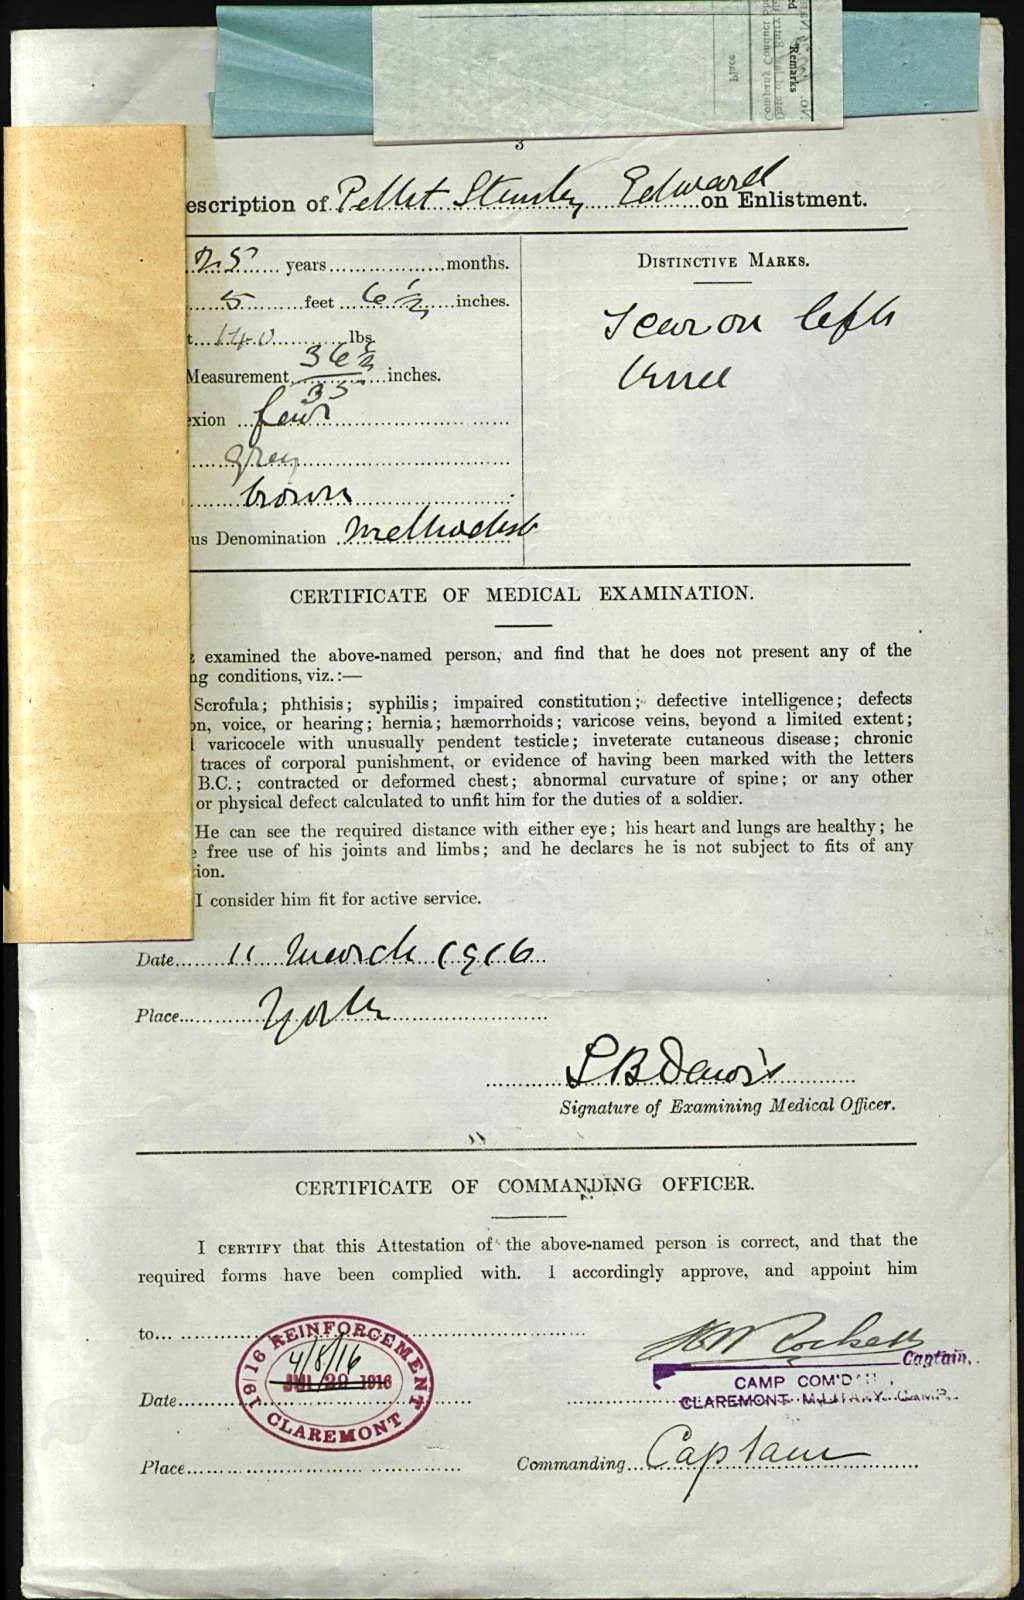 Place
Remarks
No.
3
escription of Pellet Stanley Edward on Enlistment.
25 years months.
5 feet 6 1/2 inches.
140 lbs.
Measurement 36 1/2 / 35 inches.
exion fair
grey
brown
us Denomination Methodist
DISTINCTIVE MARKS.
Scar on left
knee
CERTIFICATE OF MEDICAL EXAMINATION.
examined the above-named person, and find that he does not present any of the
ng conditions, viz.:—
Scrofula; phthisis; syphilis; impaired constitution; defective intelligence; defects
on, voice, or hearing; hernia; hæmorrhoids; varicose veins, beyond a limited extent;
varicocele with unusually pendent testicle; inveterate cutaneous disease; chronic
traces of corporal punishment, or evidence of having been marked with the letters
B.C.; contracted or deformed chest; abnormal curvature of spine; or any other
or physical defect calculated to unfit him for the duties of a soldier.
He can see the required distance with either eye; his heart and lungs are healthy; he
free use of his joints and limbs; and he declares he is not subject to fits of any
ion.
I consider him fit for active service.
Date 11 March 1916
Place York
Signature of Examining Medical Officer.
CERTIFICATE OF COMMANDING OFFICER.
I CERTIFY that this Attestation of the above-named person is correct, and that the
required forms have been complied with. I accordingly approve, and appoint him
to
19/16 REINFORCEMENT
4/8/16
JUL 29 1916
CLAREMONT
Captain.
CAMP COM'DT
CLAREMONT MILITARY CAMP.
Date
Place
Commanding Captain